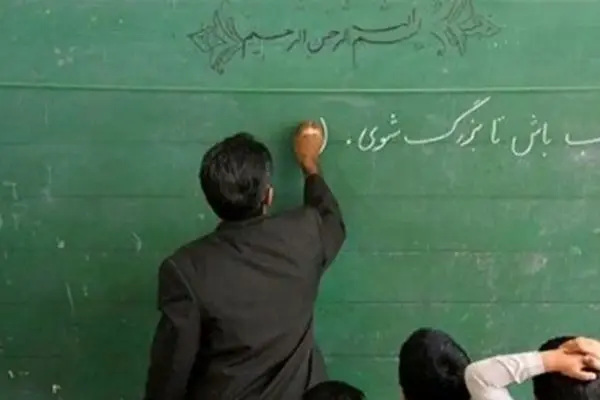 بسم الله الرحمن الرحیم
ب باش تا بزرگ شوی. (